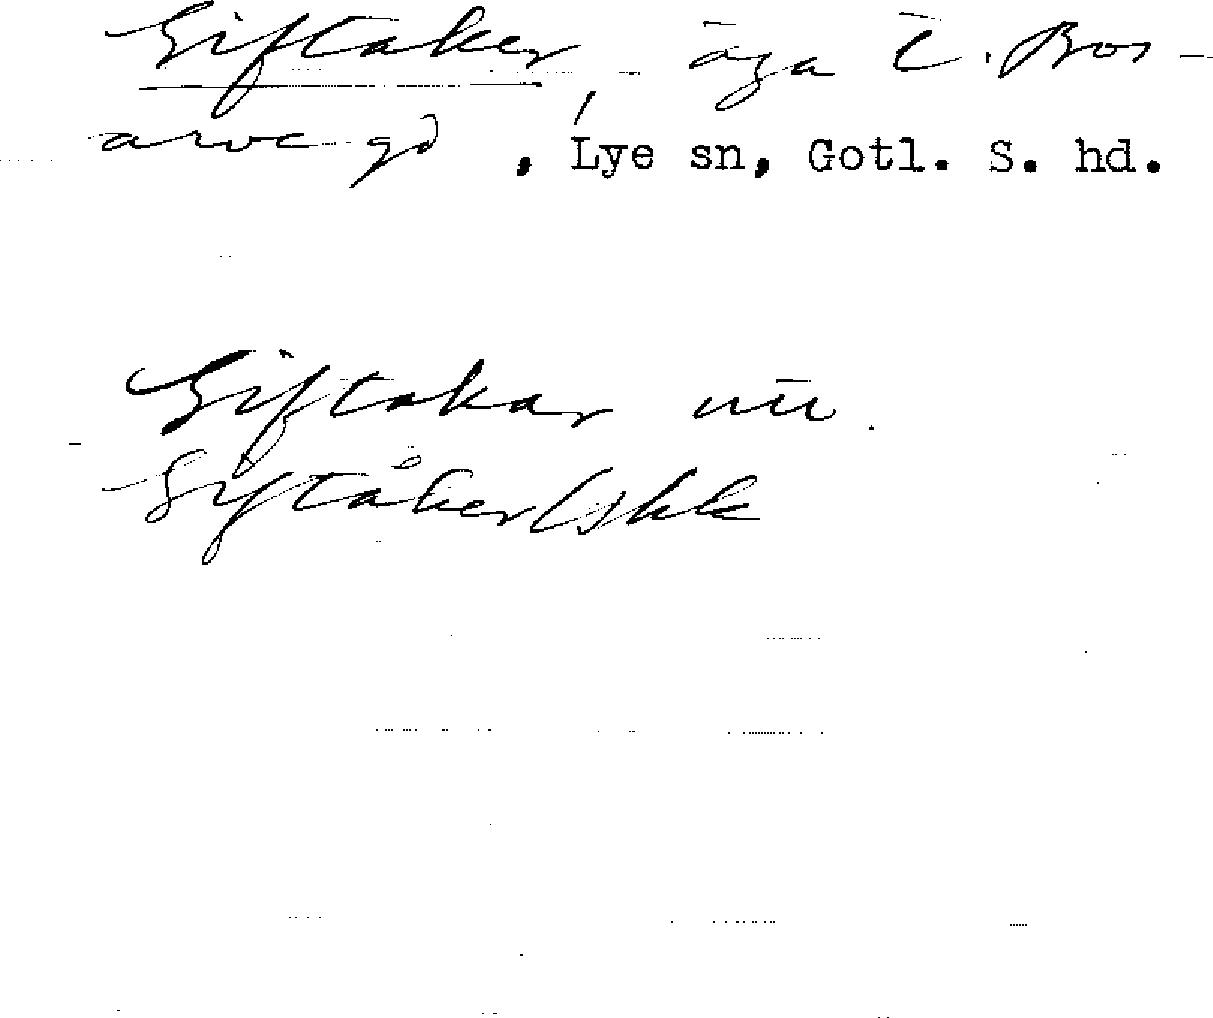 Giftaker, äga t. Bos-
arve gd, Lye sn, Gotl. S. hd.
Giftakar
Giftåker